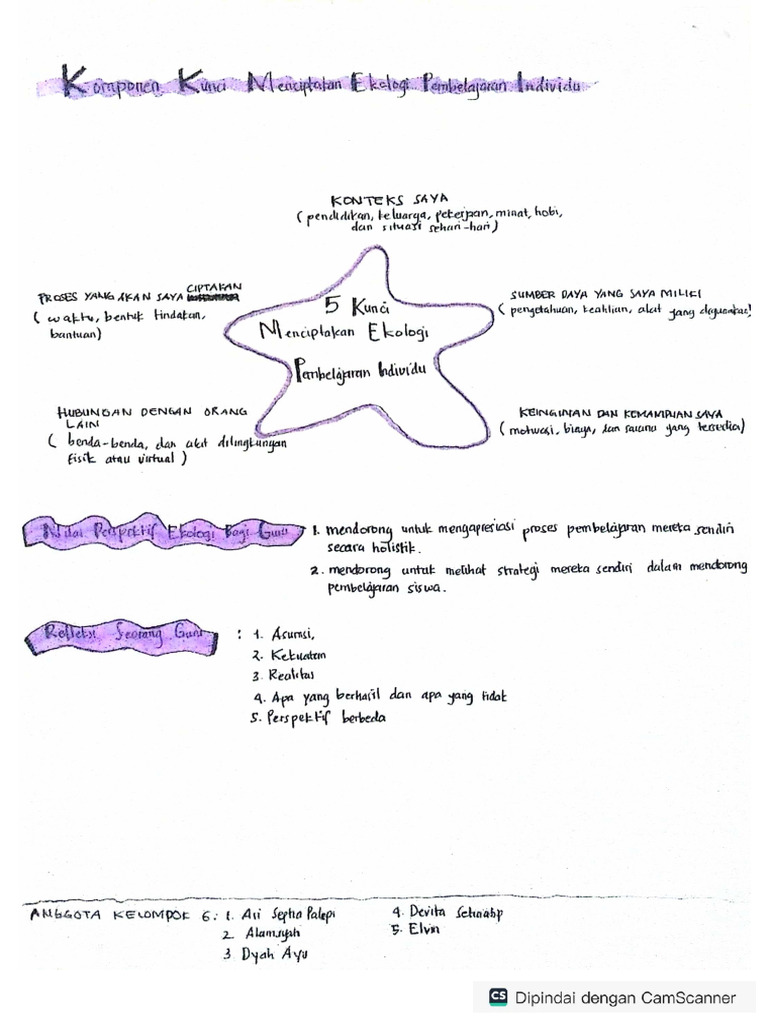 Komponen Kunci Menciptakan Ekologi Pembelajaran Individu
KONTEKS SAYA
(pendidikan, keluarga, pekerjaan, minat, hobi,
dan situasi sehari-hari)
CIPTAKAN
PROSES YANG AKAN SAYA
(waktu, bentuk tindakan,
bantuan)
SUMBER DAYA YANG SAYA MILIKI
(pengetahuan, keahlian, alat yang digunakan)
5 Kunci
Menciptakan Ekologi
Pembelajaran Individu
HUBUNGAN DENGAN ORANG
LAIN
(benda-benda, dan alat dilingkungan
fisik atau virtual)
KEINGINAN DAN KEMAMPUAN SAYA
(motivasi, biaya, dan sarana yang tersedia)
Nilai Perspektif Ekologi Bagi Guru
1. mendorong untuk mengapresiasi proses pembelajaran mereka sendiri
secara holistik.
2. mendorong untuk melihat strategi mereka sendiri dalam mendorong
pembelajaran siswa.
Refleksi Seorang Guru : 1. Asumsi,
2. Kekuatan
3. Realitas
4. Apa yang berhasil dan apa yang tidak
5. Perspektif berbeda
ANGGOTA KELOMPOK 6: 1. Ari Septra Palepi
2. Alamsyah
3. Dyah Ayu
4. Devita
5. Elvin
CS Dipindai dengan CamScanner